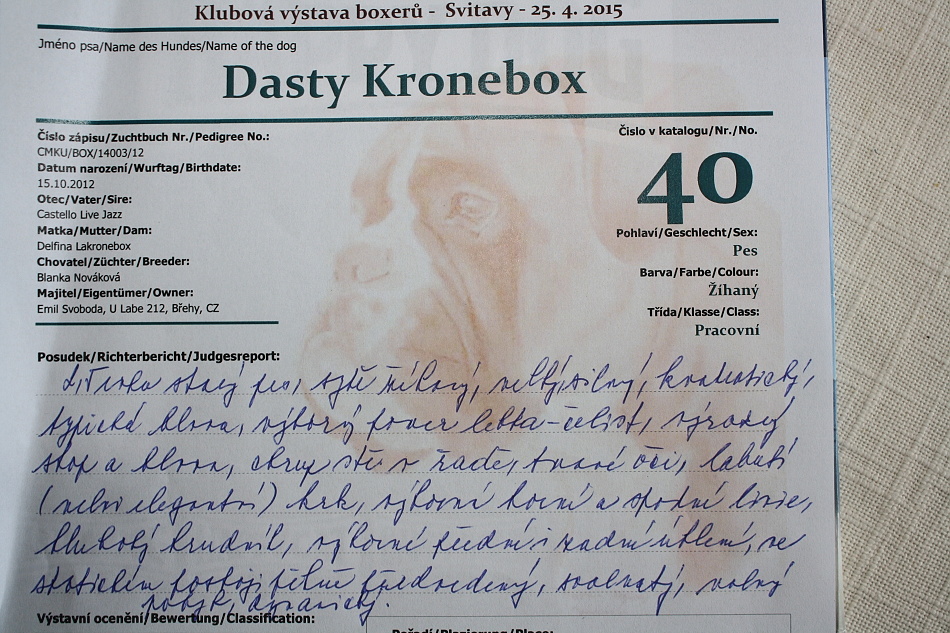 Klubová výstava boxerů - Svitavy - 25. 4. 2015
Jméno psa/Name des Hundes/Name of the dog
Dasty Kronebox
Číslo zápisu/Zuchtbuch Nr./Pedigree No.:
CMKU/BOX/14003/12
Datum narození/Wurftag/Birthdate:
15.10.2012
Otec/Vater/Sire:
Castello Live Jazz
Matka/Mutter/Dam:
Delfina Lakronebox
Chovatel/Züchter/Breeder:
Blanka Nováková
Majitel/Eigentümer/Owner:
Emil Svoboda, U Labe 212, Břehy, CZ
Číslo v katalogu/Nr./No.
40
Pohlaví/Geschlecht/Sex:
Pes
Barva/Farbe/Colour:
Žíhaný
Třída/Klasse/Class:
Pracovní
Posudek/Richterbericht/Judgesreport:
starý pes, sytě žíhaný, velký, silný, kvadratický,
typická hlava, výborný poměr lebka-čelist, výrazný
stop a hlava, chrup v řadě, tmavé oči, labutí
(velmi elegantní) krk, výborná horní a spodní linie,
hluboký hrudník, výborné přední i zadní úhlení, ve
statickém postoji pěkně předvedený, svalnatý, volný
pohyb, dynamický.
Výstavní ocenění/Bewertung/Classification:
Pořadí/Plazierung/Place: